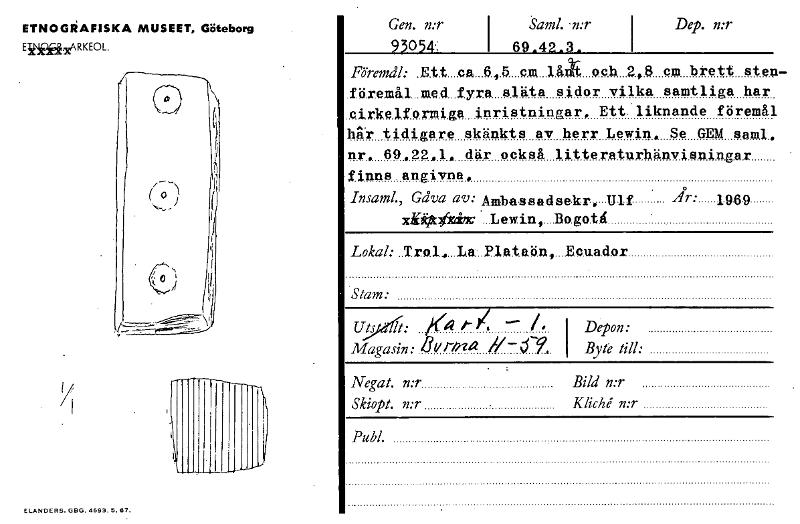 ETNOGRAFISKA MUSEET, Göteborg
ETNOGR. ARKEOL.
1/1
ELANDERS, GBG. 4693. 5. 67.
Gen. n:r Saml. n:r Dep. n:r
93054. 69.42.3.
Föremål: Ett ca 6,5 cm långt och 2,8 cm brett sten-
föremål med fyra släta sidor vilka samtliga har
cirkelformiga inristningar. Ett liknande föremål
här tidigare skänkts av herr Lewin. Se GEM saml.
nr. 69.22.1. där också litteraturhänvisningar
finns angivna.
Insaml., Gåva av: Ambassadsekr. Ulf År: 1969
Lewin, Bogotá
Lokal: Trol. La Plataön, Ecuador
Stam:
Utställt: Kart. - 1. Depon:
Magasin: Burma H-59. Byte till:
Negat. n:r Bild n:r
Skiopt. n:r Kliché n:r
Publ.